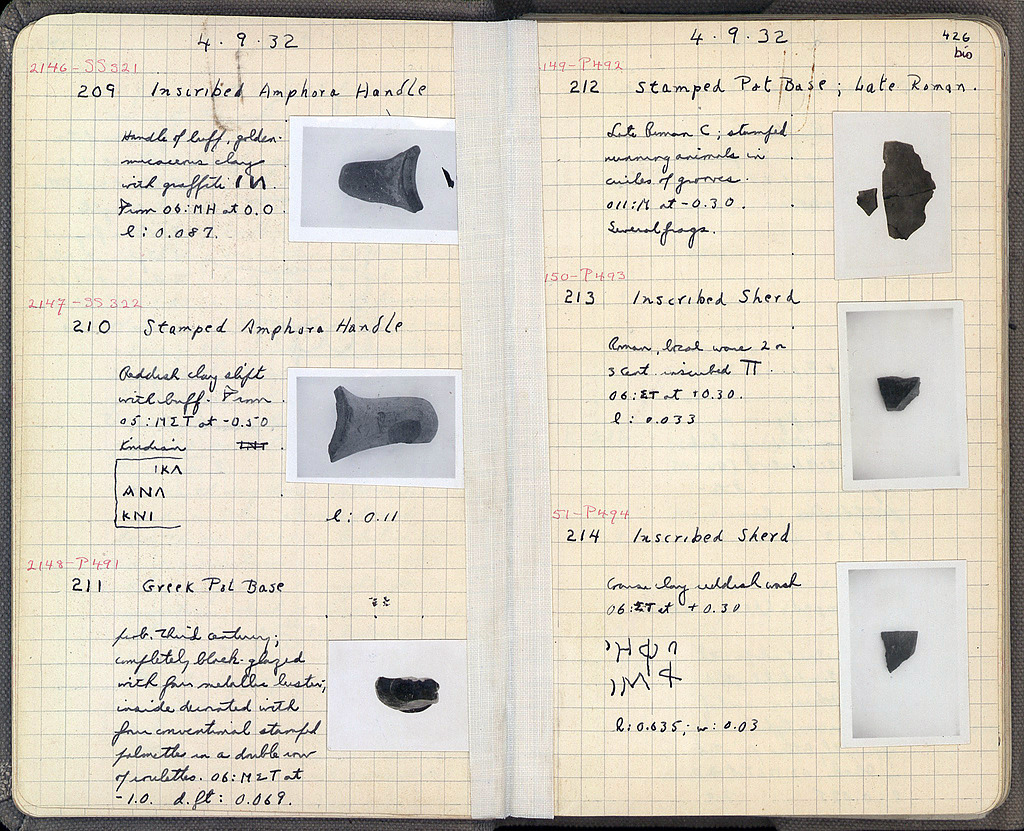 4 · 9 · 32
2146 - SS 321
209 Inscribed Amphora Handle
Handle of buff, golden-
micaceous clay
with graffiti
From 06:MH at 0.0
l: 0.087.
2147 - SS 322
210 Stamped Amphora Handle
Reddish clay slipt
with buff. From
05:ΜΣΤ at -0.50
Knidian
ΙΚΛ
ΑΝΛ
ΚΝΙ
l: 0.11
2148 - P491
211 Greek Pot Base
prob. third century;
completely black-glazed
with fair metallic luster;
inside decorated with
four conventional stamped
palmettes in a double row
of roulettes. 06:ΜΣΤ at
-1.0. d.ft: 0.069.
4 · 9 · 32
426
bis
149 - P492
212 Stamped Pot Base; Late Roman.
Late Roman C; stamped
running animals in
circles of grooves.
011:M at -0.30.
Several frags.
150 - P493
213 Inscribed Sherd
Roman, local ware 2 or
3 cent. inscribed Π
06:ΣΤ at +0.30.
l: 0.033
51 - P494
214 Inscribed Sherd
Coarse clay reddish wash
06:ΣΤ at +0.30
l: 0.035; w: 0.03